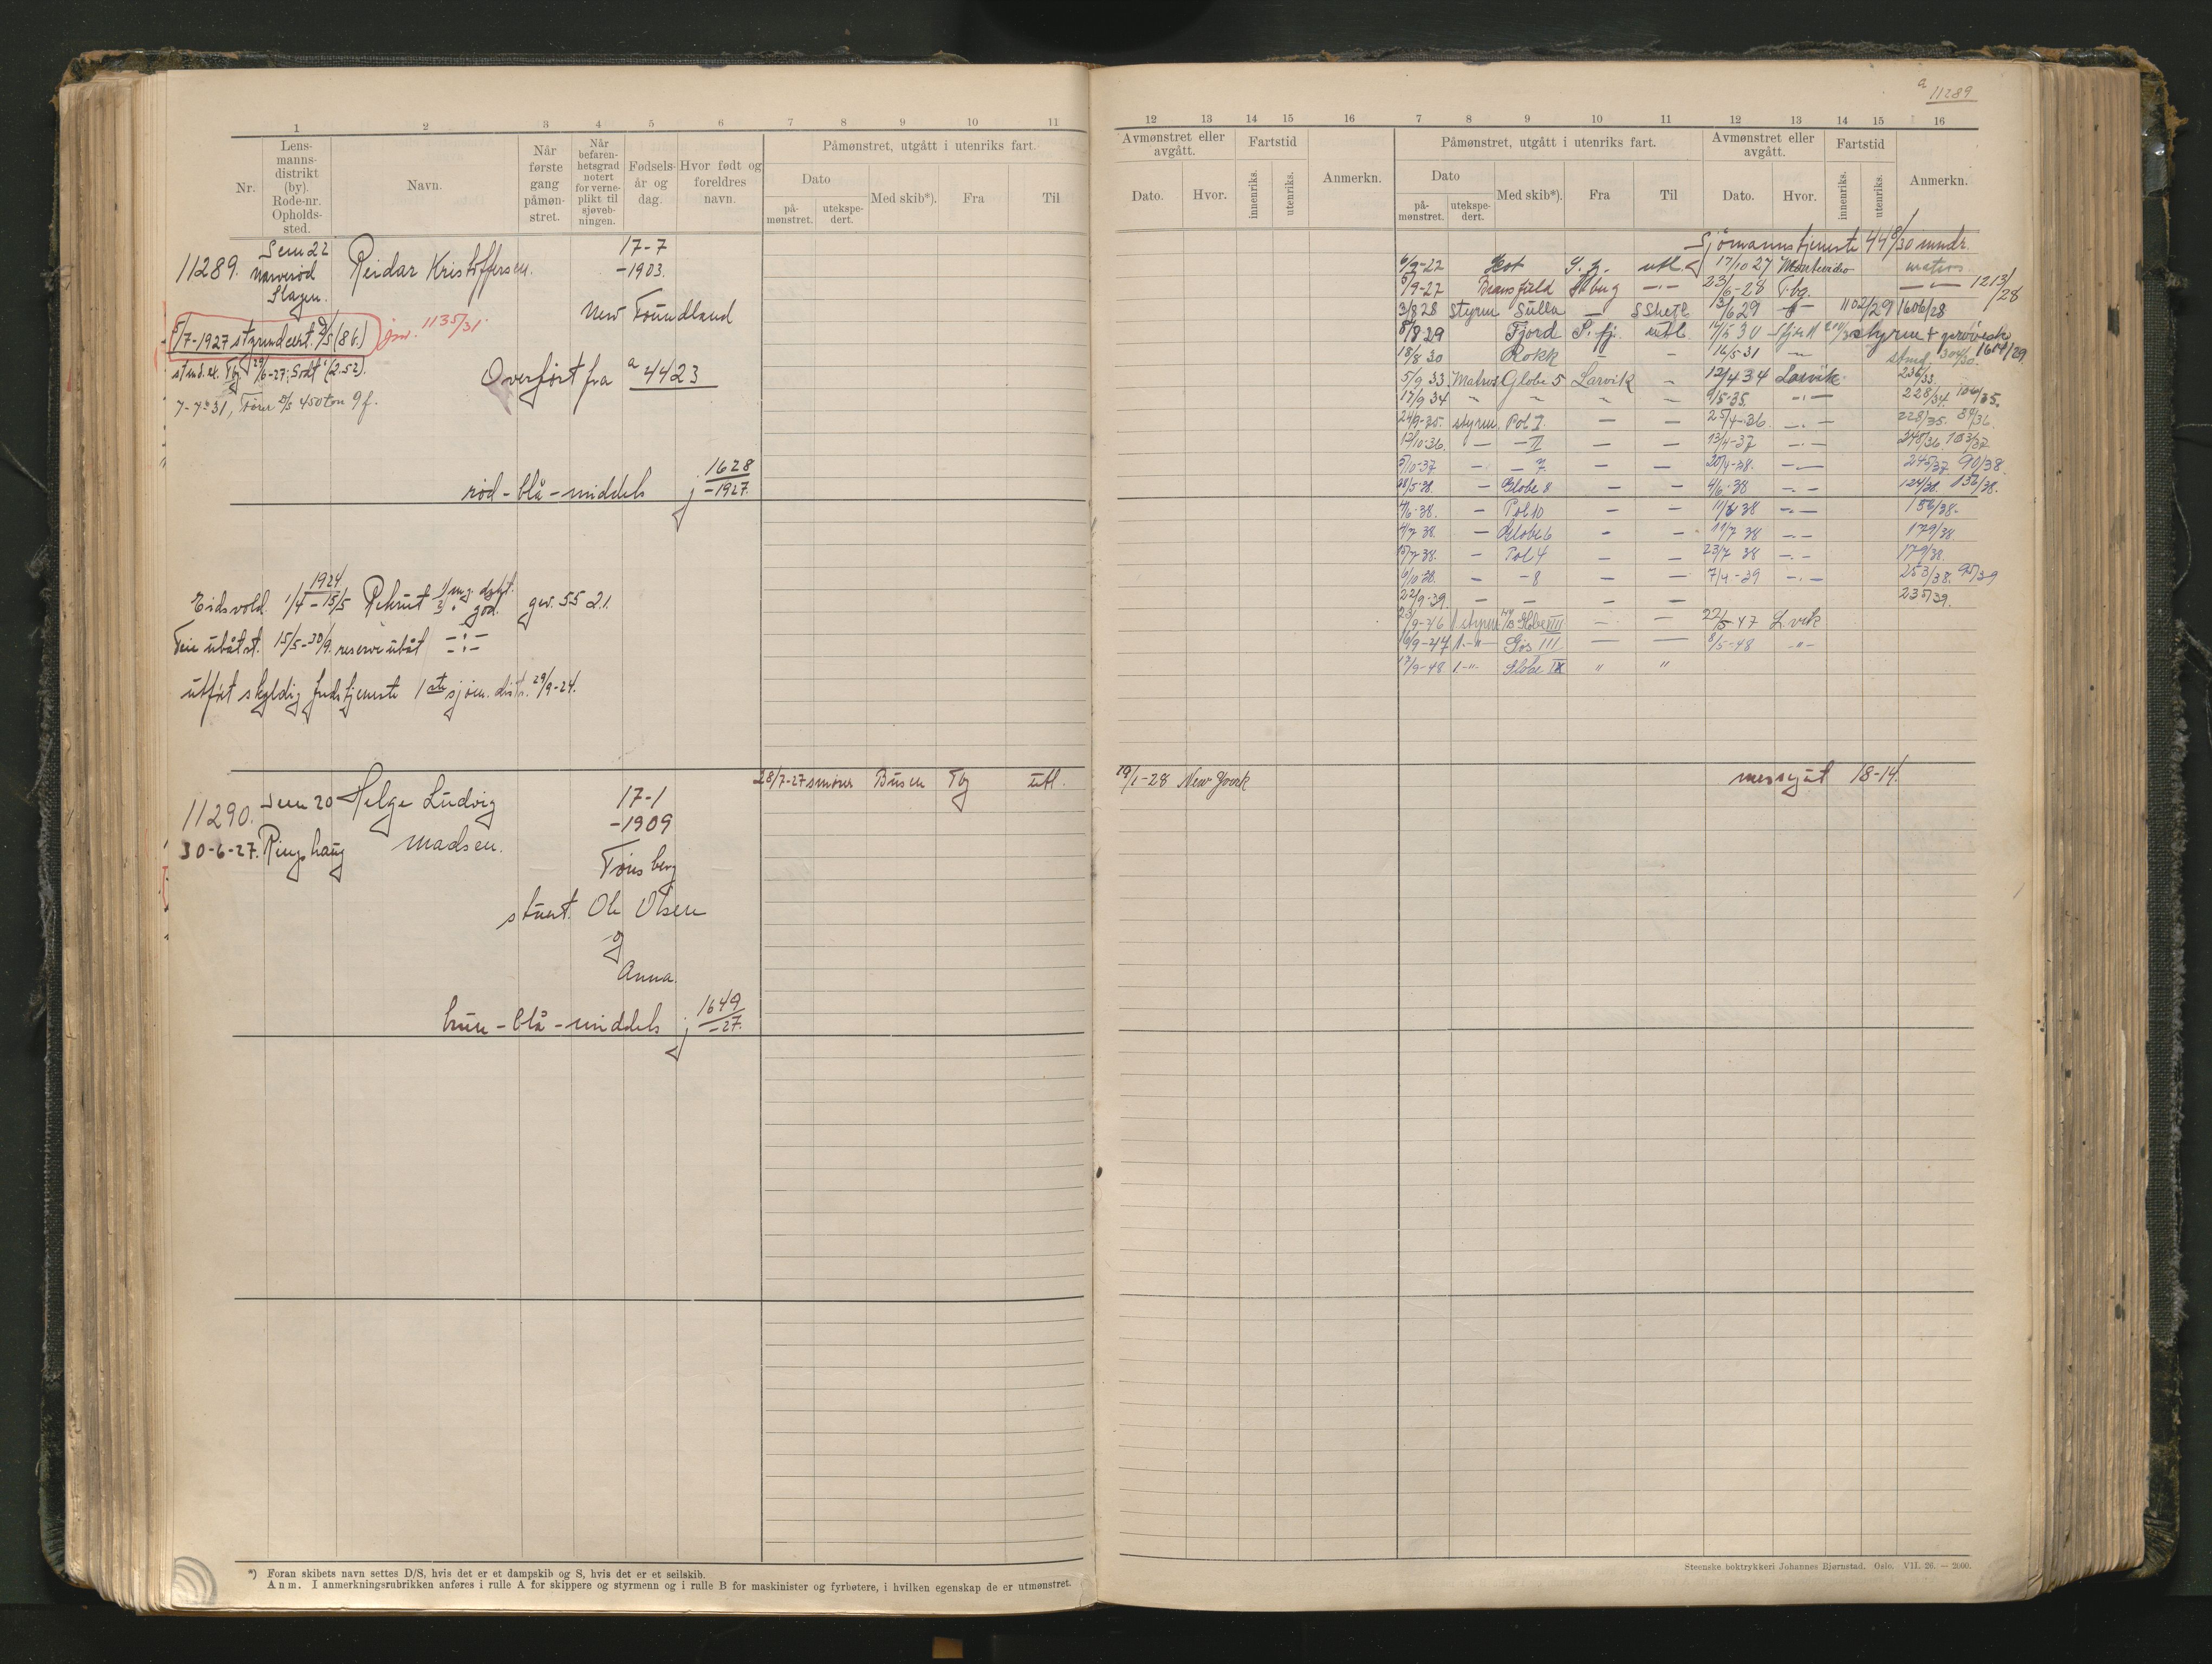 a 11289
1 2 3 4 5 6 7 8 9 10 11
Nr.
Lens-
manns-
distrikt
(by).
Rode-nr.
Opholds-
sted.
Navn.
Når
første
gang
påmøn-
stret.
Når
befaren-
hetsgrad
notert
for verne-
plikt til
sjøveb-
ningen.
Fødsels-
år og
dag.
Hvor født og
foreldres
navn.
Påmønstret, utgått i utenriks fart.
Dato
på-
mønstret.
utekspe-
dert.
Med skib*).
Fra
Til
11289.
Sem 22
Slagen.
Reidar Kristoffersen.
17-7
-1903.
New Foundland
5/7-1927 styrmdcert. (86.)
jnr. 1135/31.
Overført fra a 4423
rød - blå - middels j 1628/-1927.
1924
Eidsvold. 1/4 - 15/5 Rekrut
god.
gev. 5521.
ubåtst. 15/5-30/9. reserve ubåt
utført skyldig 1ste sjøm. distr. 29/9-24.
11290.
30-6-27.
Sem 20
Ringshaug
Helge Ludvig
Madsen.
17-1
-1909
Tønsberg
stuert. Ole Olsen
og
Anna.
brun - blå - middels j 1649/-27.
28/7-27 smører Busen Tbg utl.
*) Foran skibets navn settes D/S, hvis det er et dampskib og S, hvis det er et seilskib.
Anm. I anmerkningsrubrikken anføres i rulle A for skippere og styrmenn og i rulle B for maskinister og fyrbøtere, i hvilken egenskap de er utmønstret.
12 13 14 15 16 7 8 9 10 11 12 13 14 15 16
Avmønstret eller
avgått.
Dato.
Hvor.
Fartstid
innenriks.
utenriks.
Anmerkn.
Påmønstret, utgått i utenriks fart.
Dato
på-
mønstret.
utekspe-
dert.
Med skib*).
Fra
Til
Avmønstret eller
avgått.
Dato.
Hvor.
Fartstid
innenriks.
utenriks.
Anmerkn.
Sjømannstjeneste 44 8/30 mndr.
6/9-22 utl. 17/10 27 Montevideo matros
5/9-27 Bransfield -"- 23/6-28 Tbg. -"- 1213/28
3/8 28 styrm Sulla - S Shetl 13/6 29 1102/29 1606/28
8/8 29 Fjord S.fj. utl. 14/5 30
18/8 30 Rokk - - 16/5-31
5/9 33 Matros Globe 5 Larvik - 12/4 34 Larvik 236/33.
17/9 34 " " " " 9/5-35. -"- 228/34.
24/9-35. styrm. Pol I. - - 25/4-36. -"- 228/35. 89/36.
12/10-36. - - II - - 13/4-37 -"- 248/36. 103/37
5/10-37 - - 7. - - 20/4-38. -"- 245/37 90/38.
28/5-38. - Globe 8 - - 4/6-38 -"- 124/38. 132/38.
4/6-38. - Pol 10 - - -"-
4/7 38. - Globe 6 - - 11/7 38 -"- 179/38.
15/7 38. - Pol 4 - - 23/7 38 -"- 179/38.
6/10-38. - - 8 - - 7/4-39 -"- 253/38. 95/39
22/9-39. - - - - 235/39.
23/9-46 1 styrm. Globe VIII - - 22/5-47 L.vik
16/9-47 1. -"- Gos III - - 8/5-48 -"-
17/9-48 1. -"- Globe IX " "
19/1-28 New York messegut 18-14.
Steenske boktrykkeri Johannes Bjørnstad. Oslo. VII. 26. — 2000.